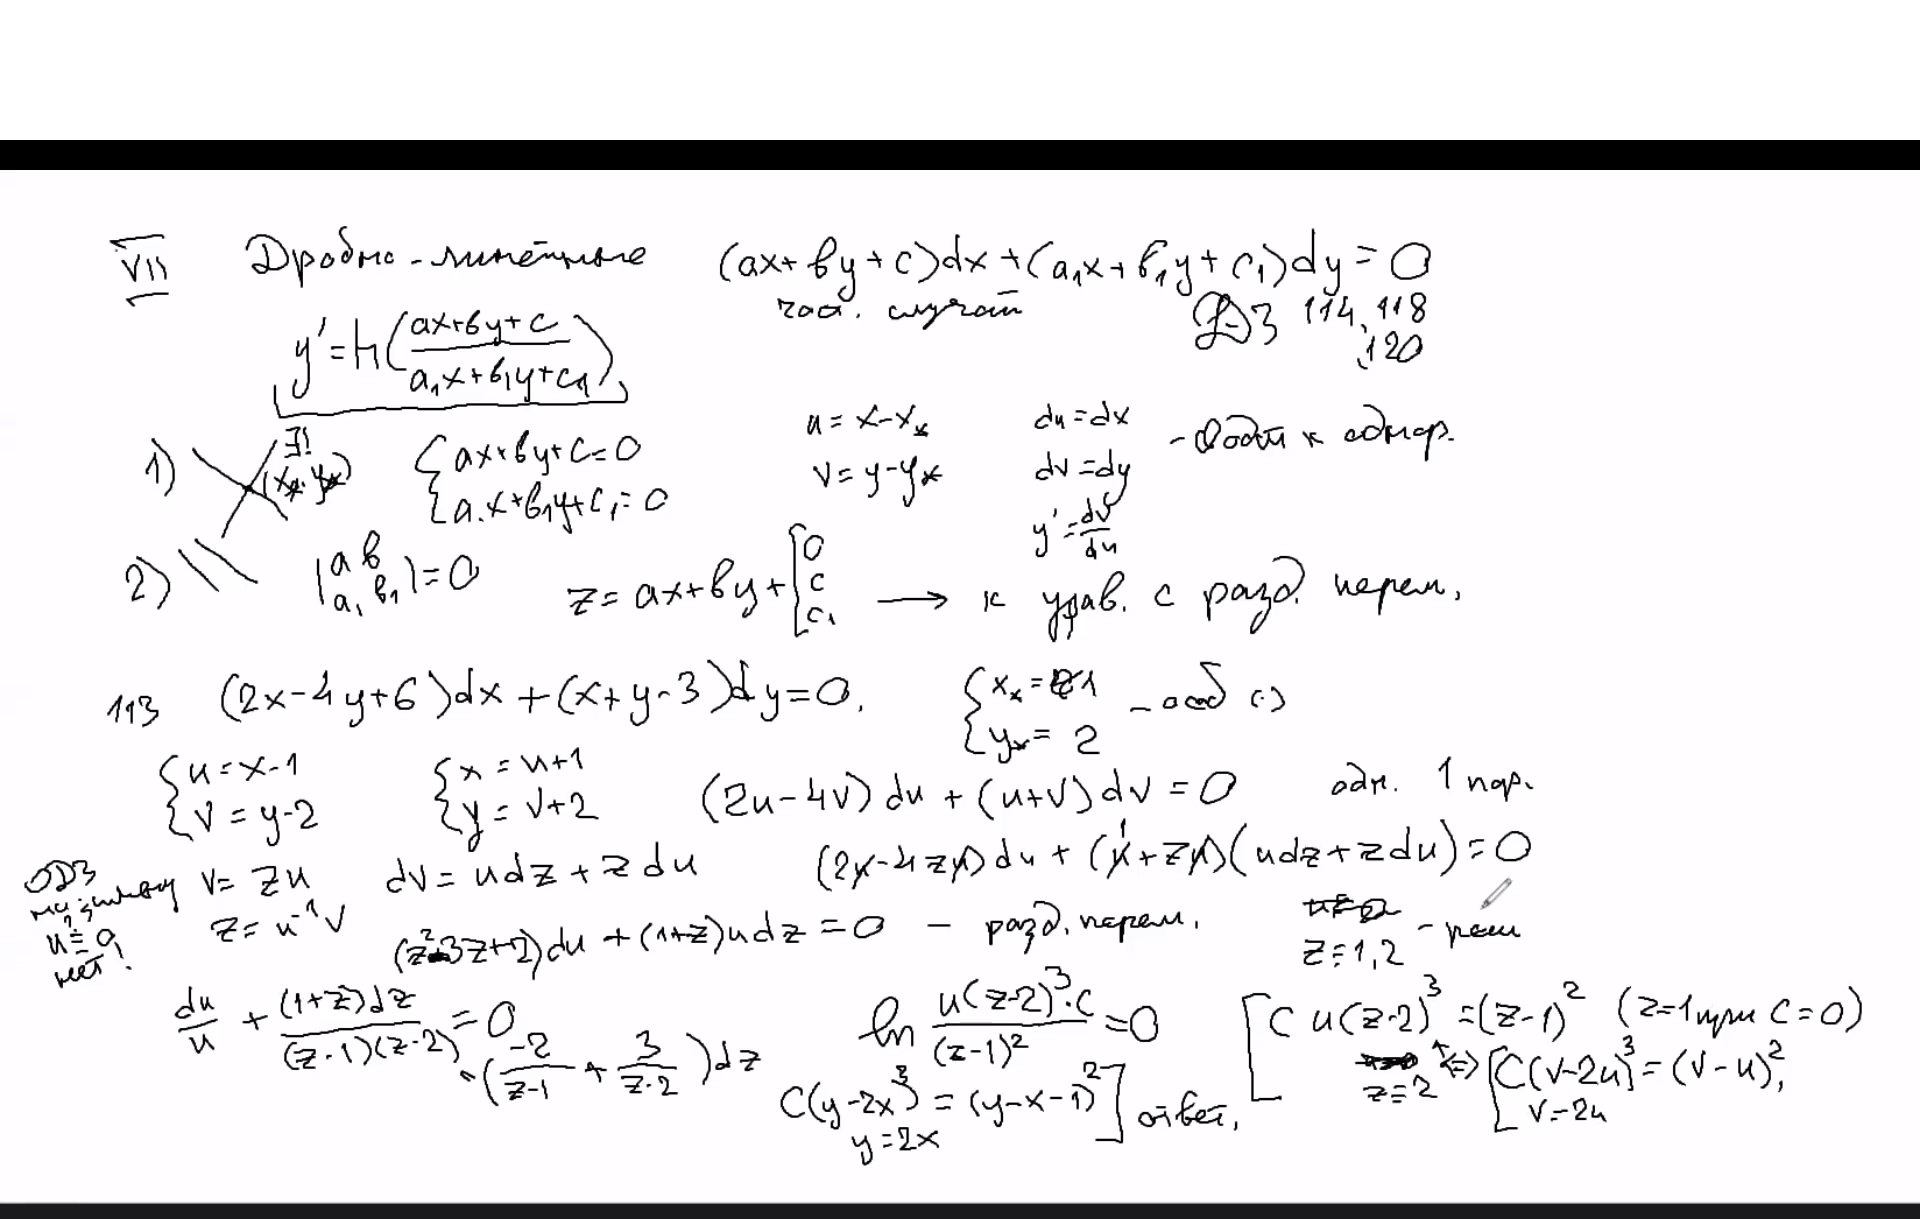 VII Дробно-линейные (ax+by+c)dx+(a₁x+b₁y+c₁)dy=0
част. случай ДЗ 114, 118, 120
y'=h((ax+by+c)/(a₁x+b₁y+c₁))
1) ∃! (x*, y*) {ax+by+c=0 u=x-x* du=dx - к однор.
{a₁x+b₁y+c₁=0 v=y-y* dv=dy
y'=dv/du
2) |a b a₁ b₁|=0 z=ax+by+[0 c c₁ → к урав. с разд. перем.
113 (2x-4y+6)dx+(x+y-3)dy=0, {x*=1 - особ (·)
{y*=2
{u=x-1 {x=u+1
{v=y-2 {y=v+2 (2u-4v)du+(u+v)dv=0 одн. 1 пор.
ОДЗ
на замену v=zu dv=udz+zdu (2u-4zu)du+(u+zu)(udz+zdu)=0
u≡0, нет! z=u⁻¹v (z²-3z+2)du+(1+z)udz=0 - разд. перем. z≡1,2 - реш
du/u+(1+z)dz/((z-1)(z-2))=0
(-2/(z-1)+3/(z-2))dz
ln (u(z-2)³·C)/(z-1)²=0
[Cu(z-2)³=(z-1)² (z=1 при C=0)
z≡2 ⇔ [C(v-2u)³=(v-u)²,
v=2u
C(y-2x)³=(y-x-1)²] ответ,
y=2x